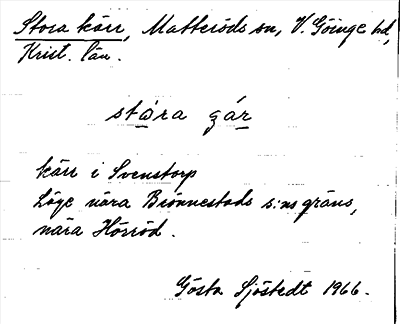 Stora kärr, Matteröds sn, V. Göinge hd,
Krist. län.
stώra gár
kärr i Svenstorp
Läge nära Brönnestads s:ns gräns,
nära Hörröd.
Gösta Sjöstedt 1966.